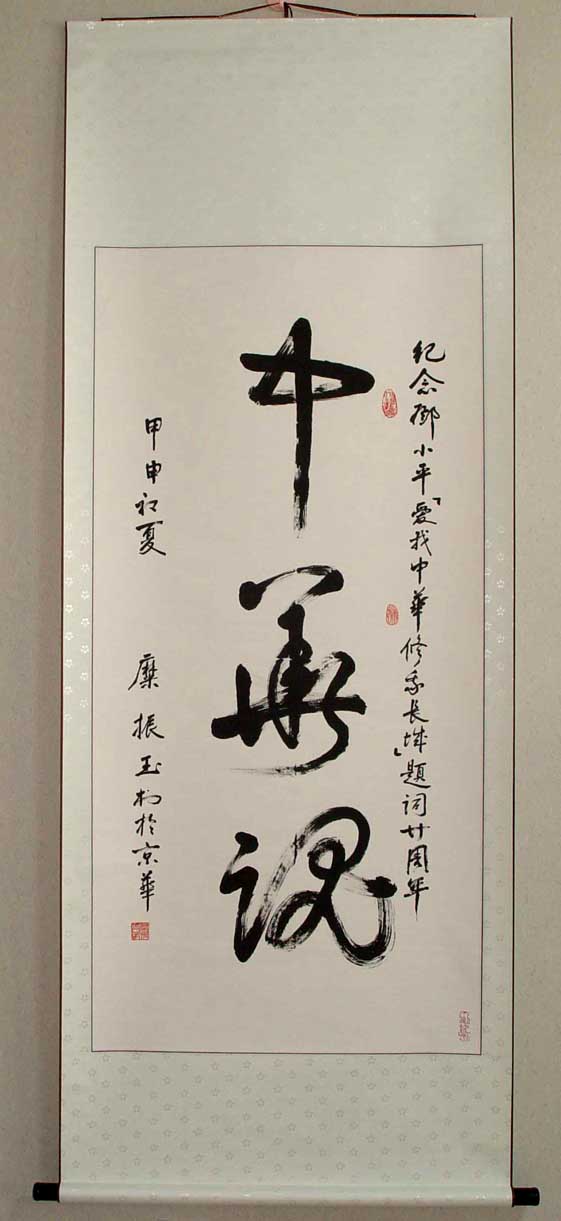 纪念邓小平「爱我中华修我长城」题词廿周年
中华魂
甲申初夏
糜振玉书於京華